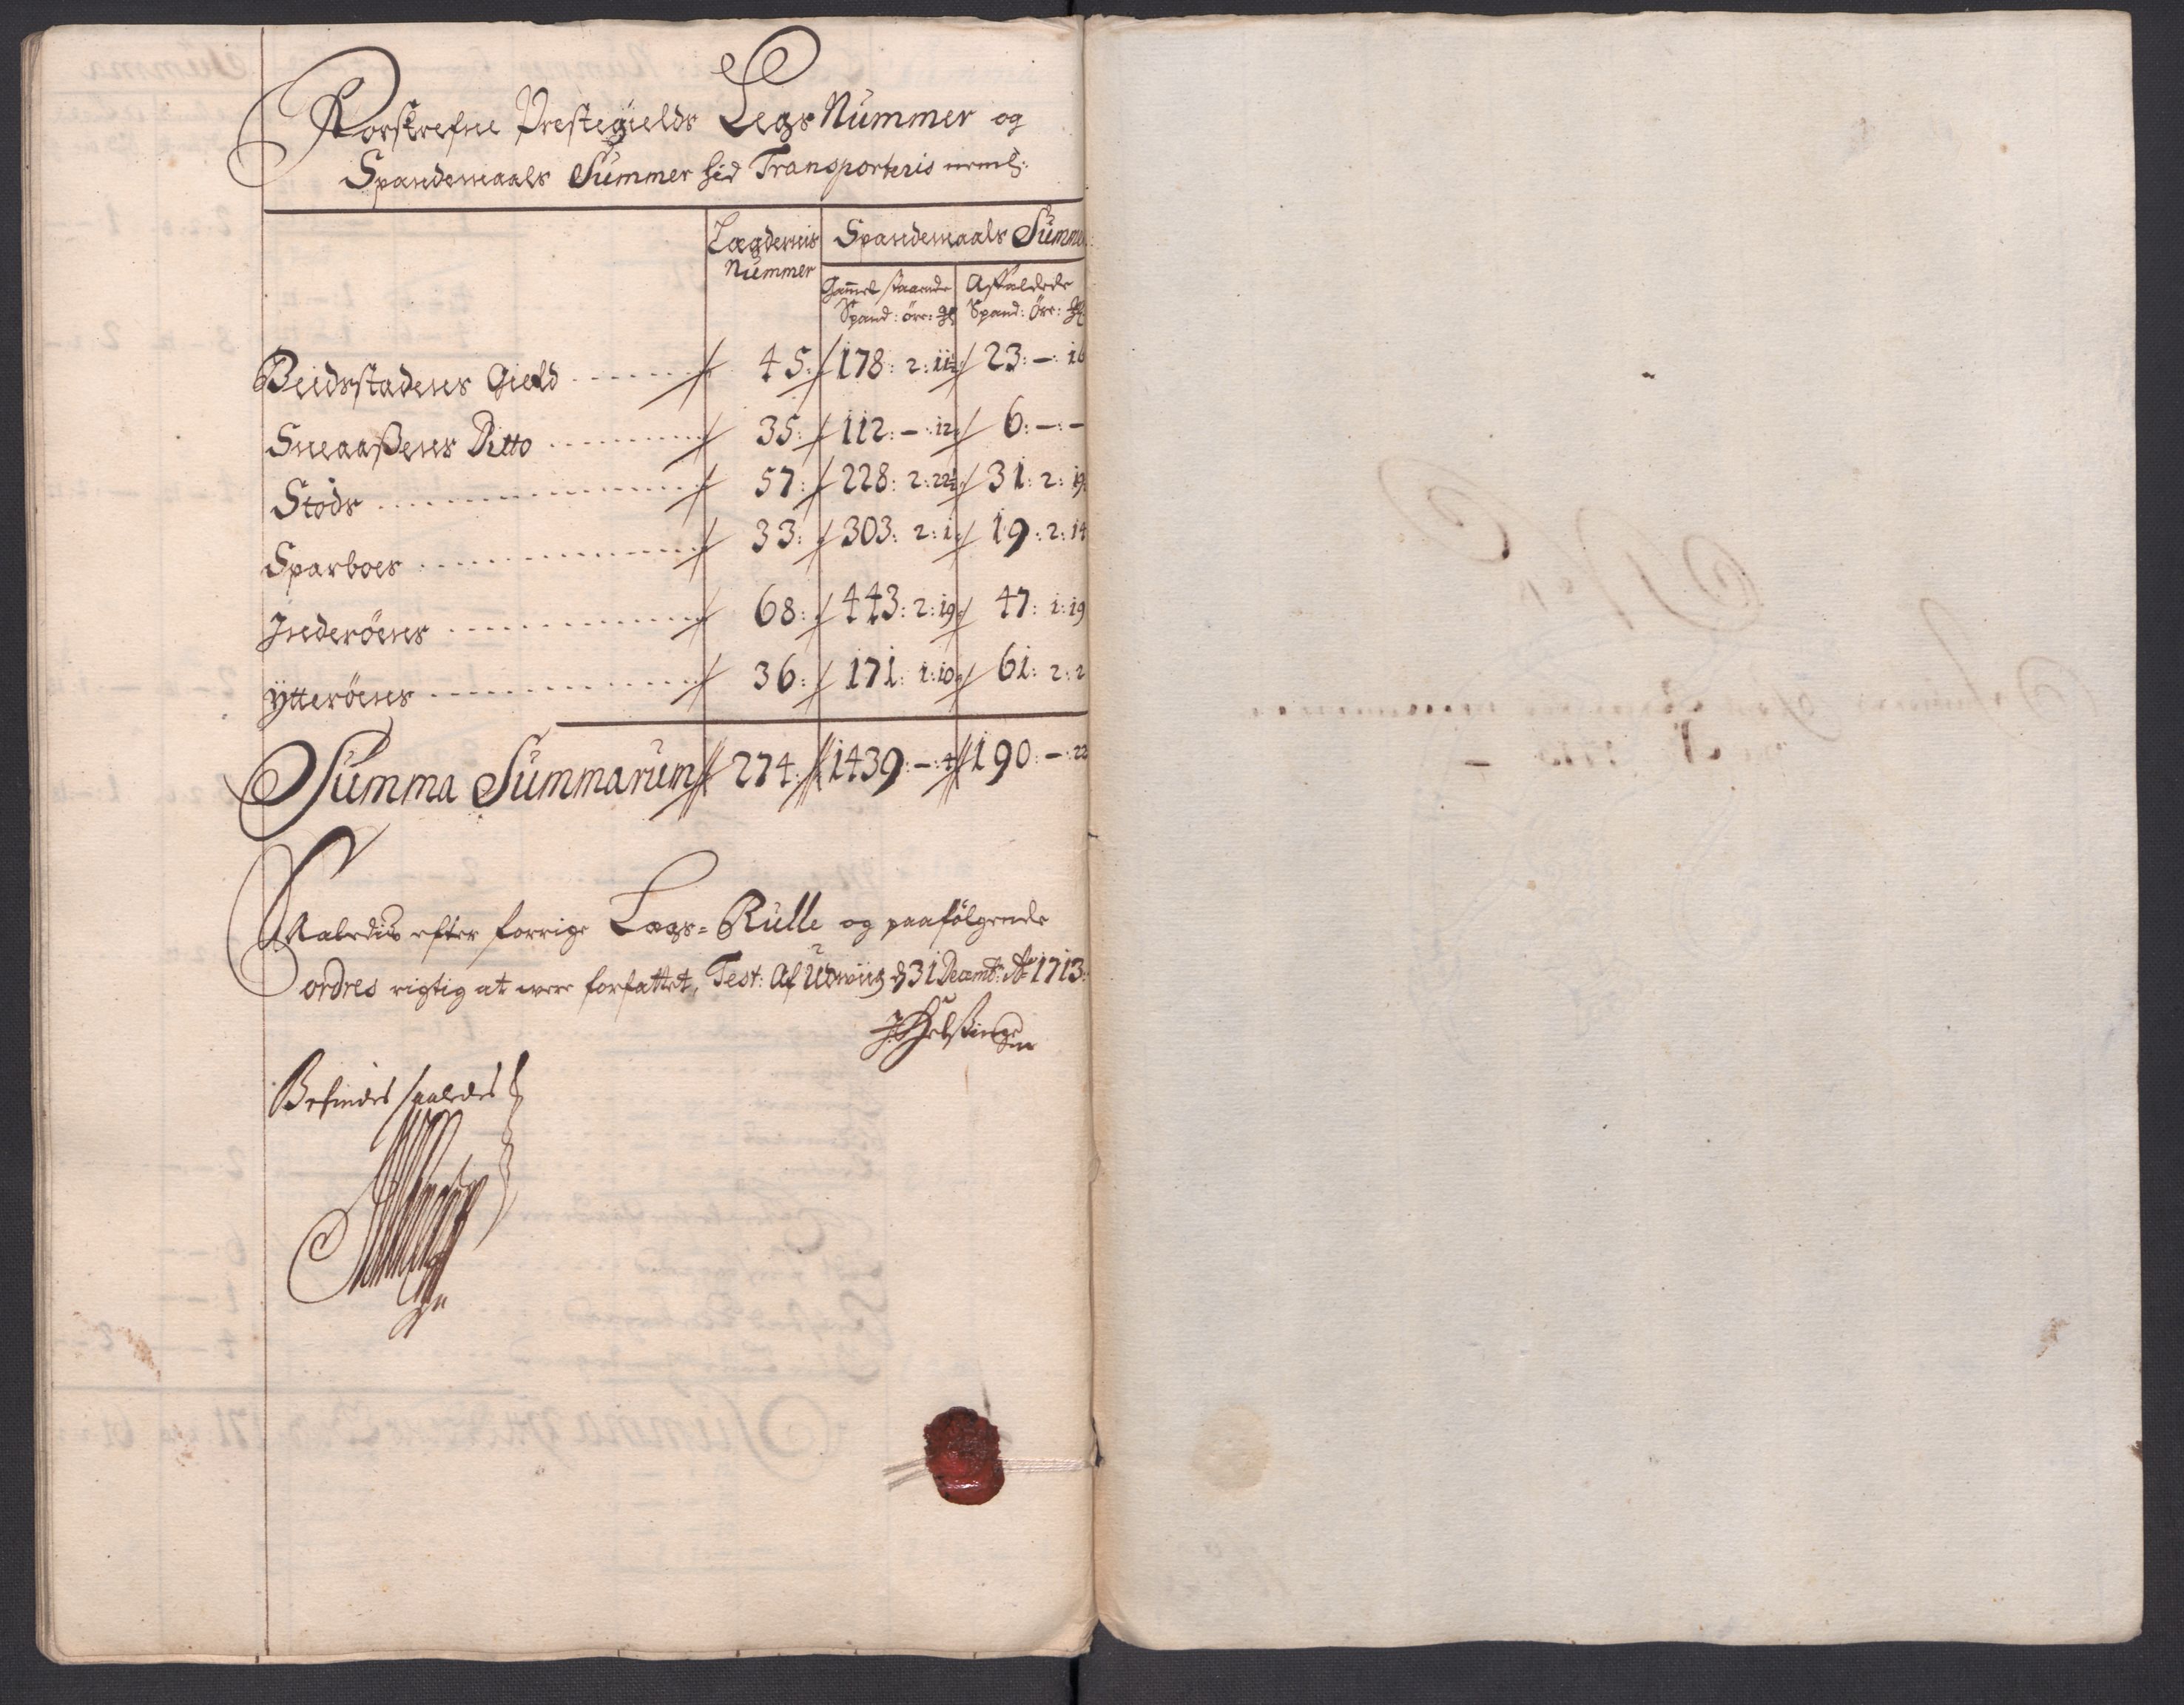 Forskrefne Prestegields Legs Nummer og
Spandemaals Summer hid Transporteris neml:
Lægdernis Nummer
Spandemaals Summer
Gammel staaende Spand: öre:
Affældede Spand: Öre:
Beidstadens Gield 45: 178: 2: 11½ 23: –: 16
Sneaaßens Ditto 35: 112: –: 12: 6: –: –
Stods 57: 228: 2: 22½ 31: 2: 19:
Sparboes 33: 303: 2: 1: 19: 2: 14
Inderöens 68: 443: 2: 19: 47: 1: 19
Ytteröens 36: 171: 1: 10: 61: 2: 2
Summa Summarum 274: 1439: –: 4: 190: –: 22
Saaledis efter forrige Lægs=Rulle og paafölgende
ordres rigtig at were forfattet, Test: Af Udwiig d 31 Decemb: Ao 1713:
Befindes saaledes